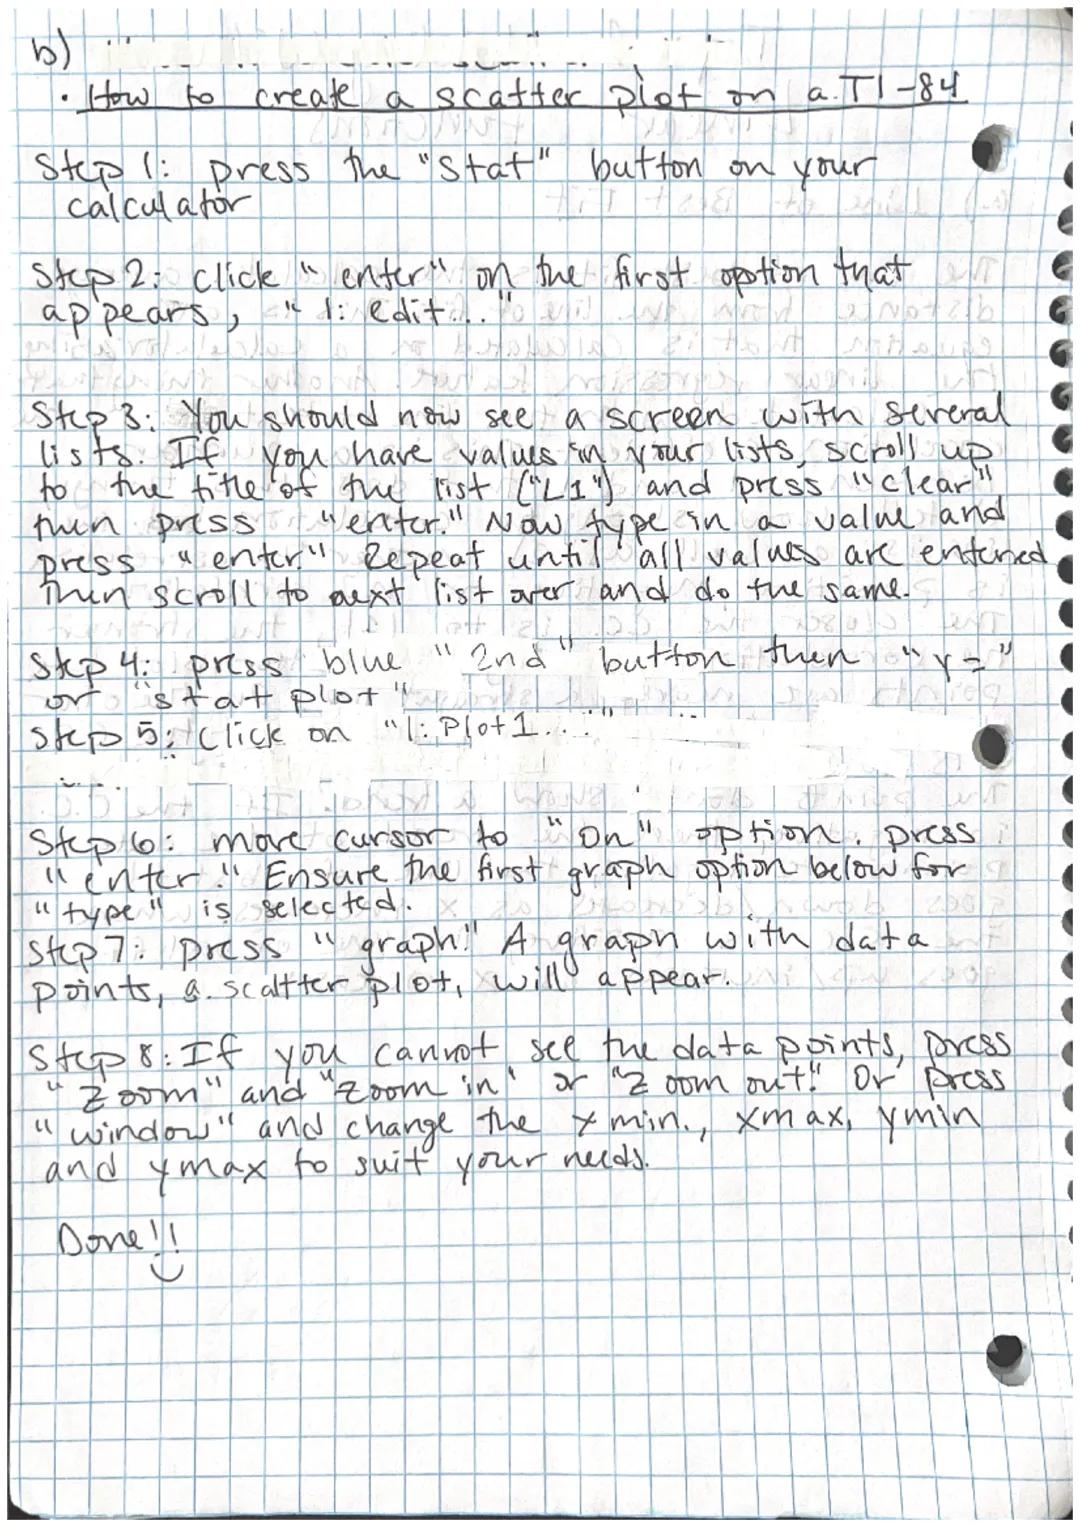 b)
· How to create a scatter plot on a TI-84
Step 1: press the "Stat" button on your
calculator
Step 2: click "enter" on the first option that
appears, "1: edit..."
Step 3: You should now see a screen with several
lists. If you have values in your lists, scroll up
to the title of the list ("L1") and press "clear"
then press "enter." Now type in a value and
press "enter." Repeat until all values are entered
Then scroll to next list over and do the same.
Step 4: press blue "2nd" button then "y="
or "stat plot"
Step 5: Click on "1: Plot1..."
Step 6: move cursor to "On" option. press
"enter." Ensure the first graph option below for
"type" is selected.
Step 7: press "graph." A graph with data
points, a scaltter plot, will appear.
Step 8: If you cannot see the data points, press
"Zoom" and "zoom in" or "Zoom out." Or press
"window" and change the xmin., xmax, ymin
and ymax to suit your needs.
Done!!